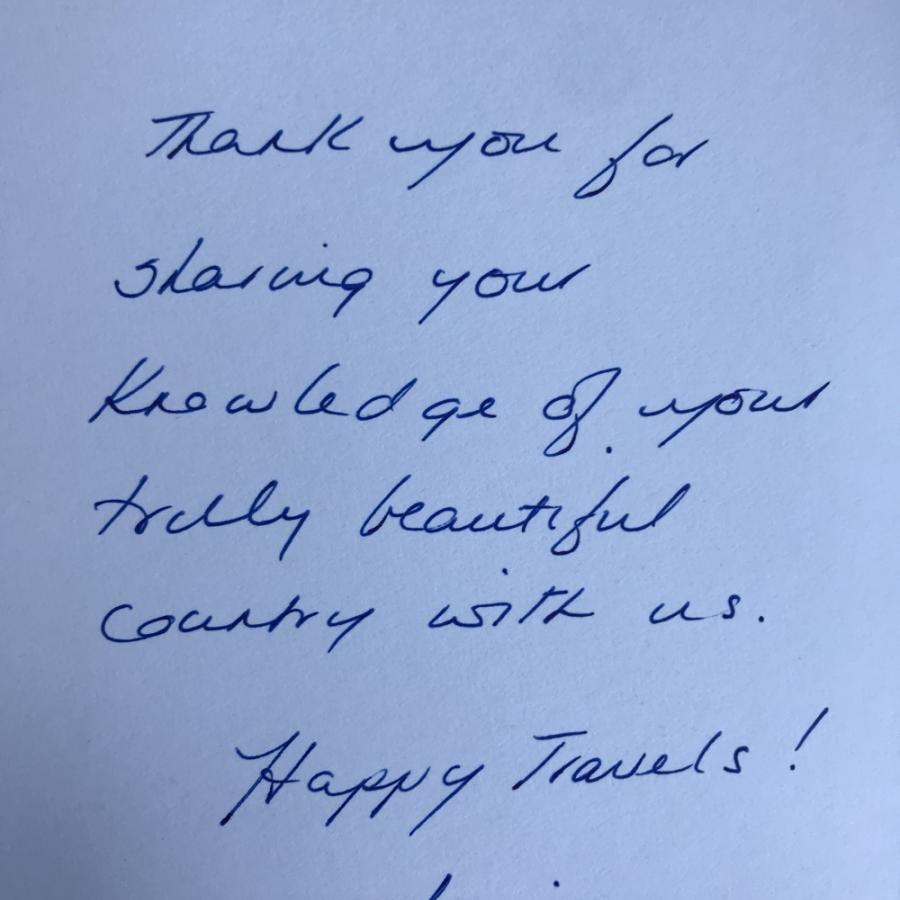 Thank you for
sharing your
Knowledge of your
trully beautiful
Country with us.
Happy Travels!